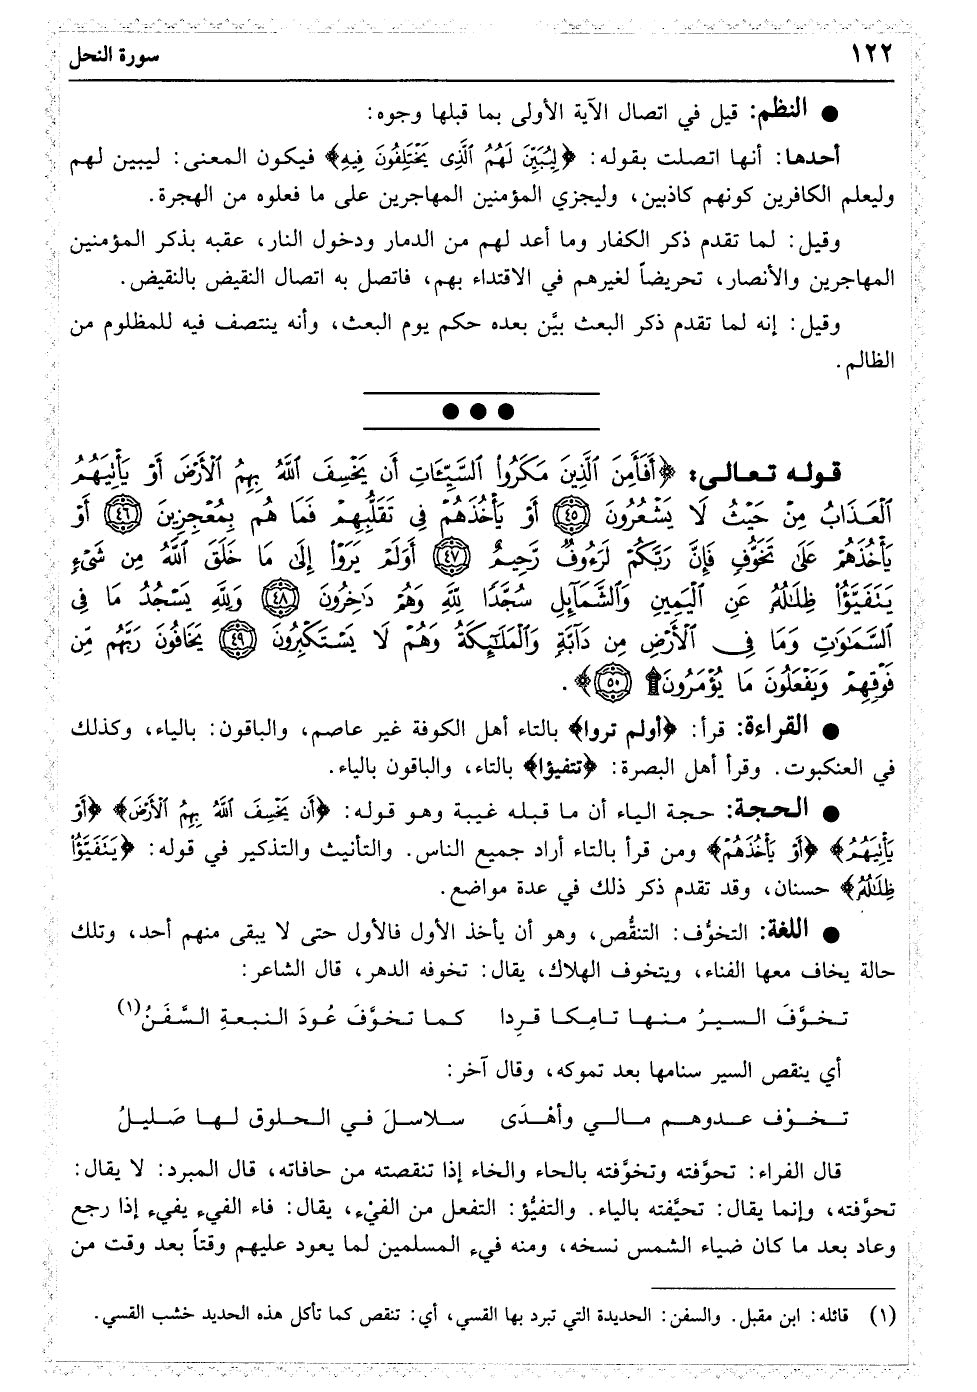 ١٢٢ سورة النحل
● النظم: قيل في اتصال الآية الأولى بما قبلها وجوه:
أحدها: أنها اتصلت بقوله: ﴿لِيُبَيِّنَ لَهُمُ ٱلَّذِى يَخْتَلِفُونَ فِيهِ﴾ فيكون المعنى: ليبين لهم
وليعلم الكافرين كونهم كاذبين، وليجزي المؤمنين المهاجرين على ما فعلوه من الهجرة.
وقيل: لما تقدم ذكر الكفار وما أعد لهم من الدمار ودخول النار، عقبه بذكر المؤمنين
المهاجرين والأنصار، تحريضاً لغيرهم في الاقتداء بهم، فاتصل به اتصال النقيض بالنقيض.
وقيل: إنه لما تقدم ذكر البعث بيَّن بعده حكم يوم البعث، وأنه ينتصف فيه للمظلوم من
الظالم.
● ● ●
قوله تعالى: ﴿أَفَأَمِنَ ٱلَّذِينَ مَكَرُوا۟ ٱلسَّيِّـَٔاتِ أَن يَخْسِفَ ٱللَّهُ بِهِمُ ٱلْأَرْضَ أَوْ يَأْتِيَهُمُ
ٱلْعَذَابُ مِنْ حَيْثُ لَا يَشْعُرُونَ ٤٥ أَوْ يَأْخُذَهُمْ فِى تَقَلُّبِهِمْ فَمَا هُم بِمُعْجِزِينَ ٤٦ أَوْ
يَأْخُذَهُمْ عَلَىٰ تَخَوُّفٍ فَإِنَّ رَبَّكُمْ لَرَءُوفٌ رَّحِيمٌ ٤٧ أَوَلَمْ يَرَوْا۟ إِلَىٰ مَا خَلَقَ ٱللَّهُ مِن شَىْءٍ
يَتَفَيَّؤُا۟ ظِلَـٰلُهُۥ عَنِ ٱلْيَمِينِ وَٱلشَّمَآئِلِ سُجَّدًا لِّلَّهِ وَهُمْ دَٰخِرُونَ ٤٨ وَلِلَّهِ يَسْجُدُ مَا فِى
ٱلسَّمَـٰوَٰتِ وَمَا فِى ٱلْأَرْضِ مِن دَآبَّةٍ وَٱلْمَلَـٰٓئِكَةُ وَهُمْ لَا يَسْتَكْبِرُونَ ٤٩ يَخَافُونَ رَبَّهُم مِّن
فَوْقِهِمْ وَيَفْعَلُونَ مَا يُؤْمَرُونَ ۩ ٥٠﴾.
● القراءة: قرأ: ﴿أولم تروا﴾ بالتاء أهل الكوفة غير عاصم، والباقون: بالياء، وكذلك
في العنكبوت. وقرأ أهل البصرة: ﴿تتفيؤا﴾ بالتاء، والباقون بالياء.
● الحجة: حجة الياء أن ما قبله غيبة وهو قوله: ﴿أَن يَخْسِفَ ٱللَّهُ بِهِمُ ٱلْأَرْضَ﴾ ﴿أَوْ
يَأْتِيَهُمُ﴾ ﴿أَوْ يَأْخُذَهُمْ﴾ ومن قرأ بالتاء أراد جميع الناس. والتأنيث والتذكير في قوله: ﴿يَتَفَيَّؤُا۟
ظِلَـٰلُهُۥ﴾ حسنان، وقد تقدم ذكر ذلك في عدة مواضع.
● اللغة: التخوُّف: التنقُّص، وهو أن يأخذ الأول فالأول حتى لا يبقى منهم أحد، وتلك
حالة يخاف معها الفناء، ويتخوف الهلاك، يقال: تخوفه الدهر، قال الشاعر:
تـخـوَّفَ الـسـيـرُ مـنـهـا تـامـكـا قـرِدا كـمـا تـخـوَّفَ عُـودَ الـنـبـعـةِ الـسَّـفَـنُ(١)
أي ينقص السير سنامها بعد تموكه، وقال آخر:
تـخـوْف عـدوهـم مـالـي وأهْـدَى سـلاسـلَ فـي الـحـلوق لـهـا صَـلـيـلُ
قال الفراء: تحوَّفته وتخوَّفته بالحاء والخاء إذا تنقصته من حافاته، قال المبرد: لا يقال:
تحوَّفته، وإنما يقال: تحيَّفته بالياء. والتفيُّؤ: التفعل من الفيْء، يقال: فاء الفيء يفيء إذا رجع
وعاد بعد ما كان ضياء الشمس نسخه، ومنه فيء المسلمين لما يعود عليهم وقتاً بعد وقت من
(١) قائله: ابن مقبل. والسفن: الحديدة التي تبرد بها القسي، أي: تنقص كما تأكل هذه الحديد خشب القسي.